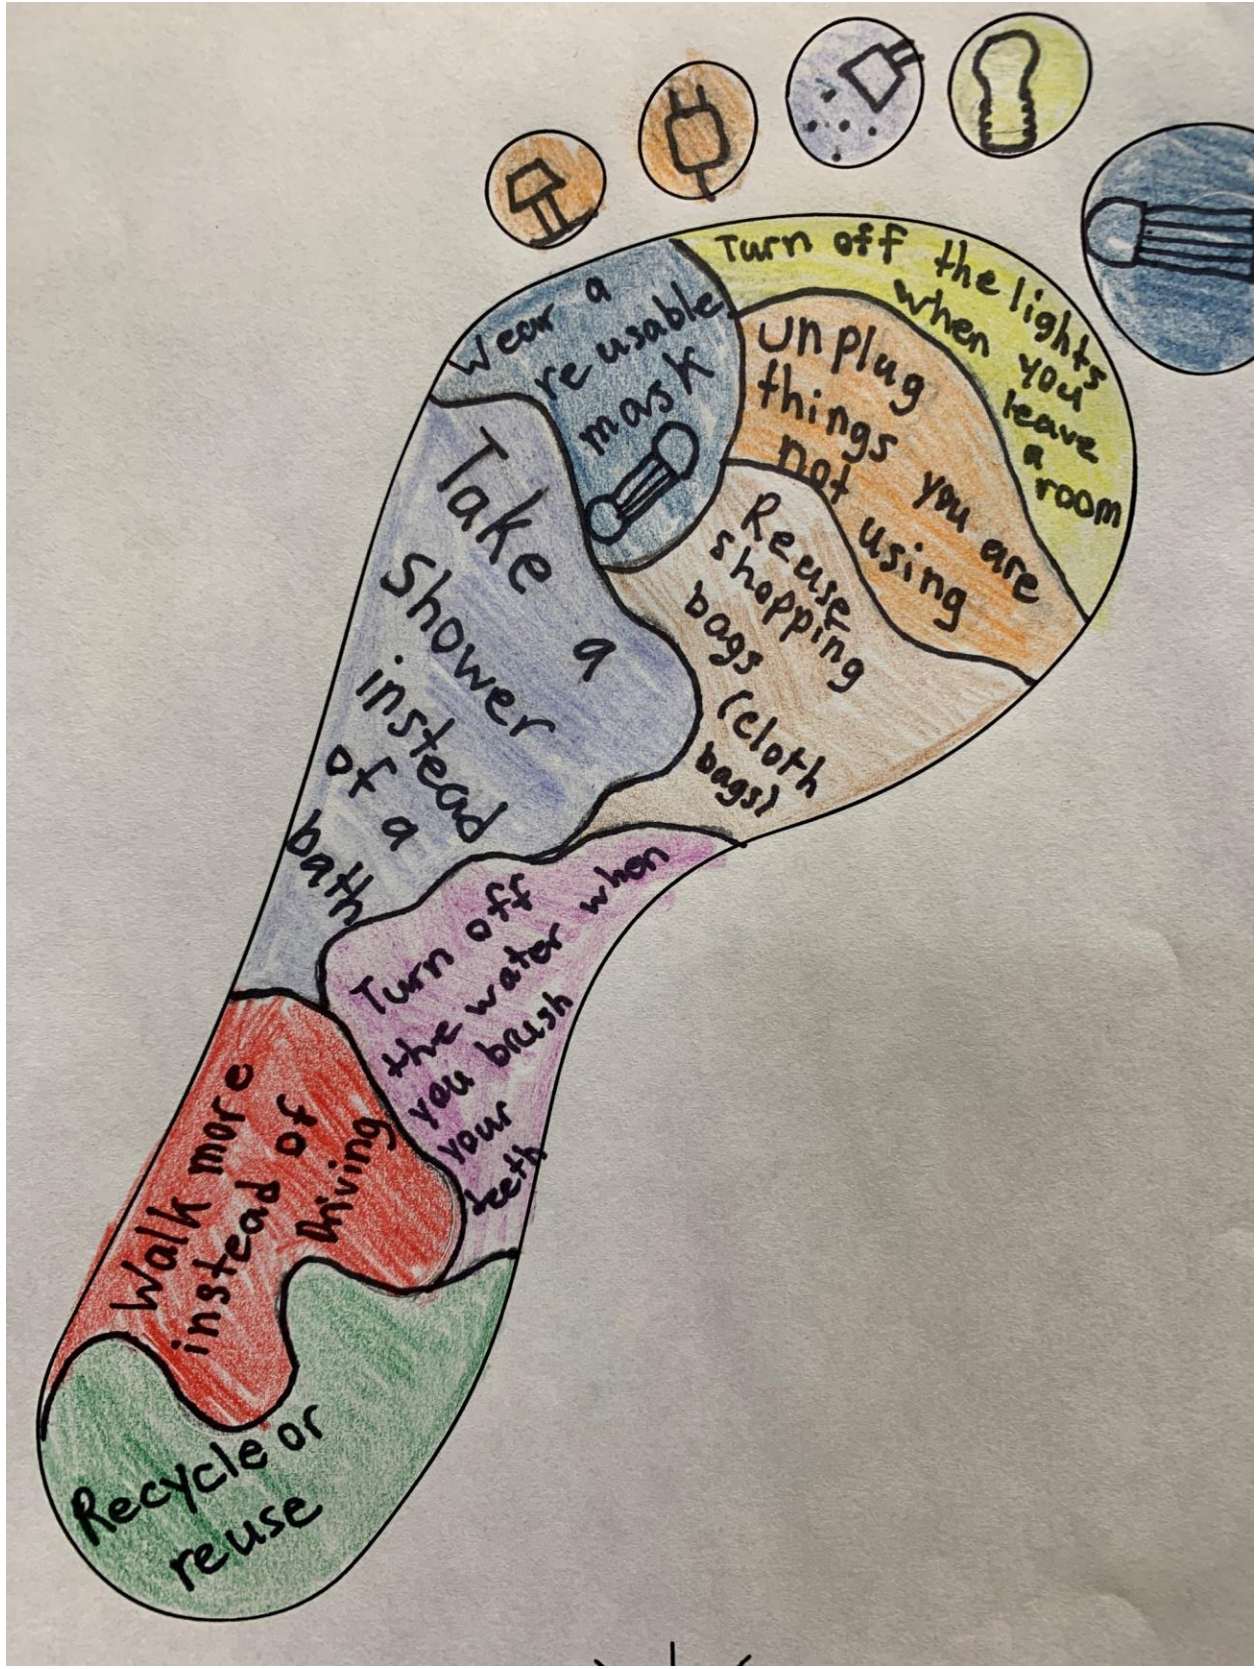 Turn off the lights
when you
leave
a
room
Wear a
reusable
mask
unplug
things you are
not using
Reuse
shopping
bags (cloth
bags)
Take a
shower
instead
of a
bath
Turn off
the water when
you brush
your
teeth
Walk more
instead of
driving
Recycle or
reuse